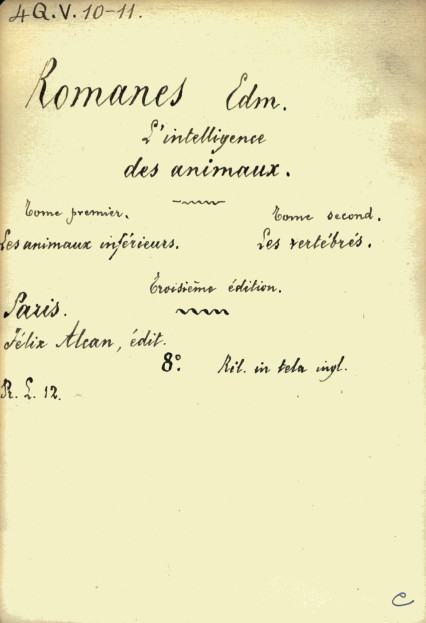 4 Q. V. 10-11.
Romanes Edm.
L'intelligence
des animaux.
Tome premier. Tome second.
Les animaux inférieurs. Les vertébrés.
Troisième édition.
Paris.
Félix Alcan, édit.
8º. Ril. in tela ingl.
R. L. 12.
C